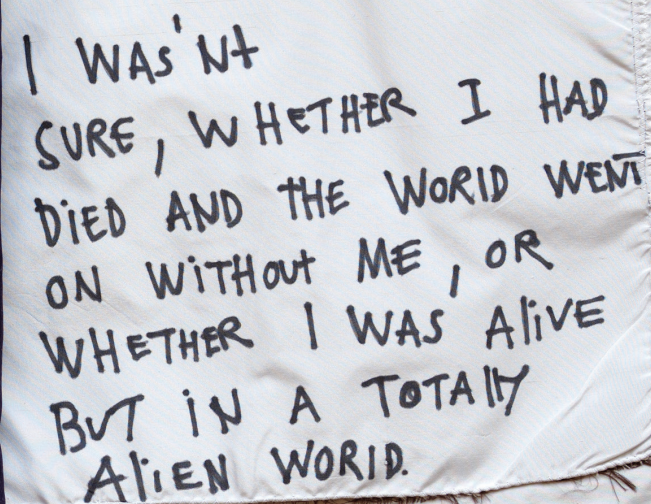 I WAS'Nt
SURE, WHETHER I HAD
DiED AND tHE WORlD WENT
ON WiTHOut ME, OR
WHETHER I WAS AliVE
BUT iN A TOTAllY
AliEN WORlD.